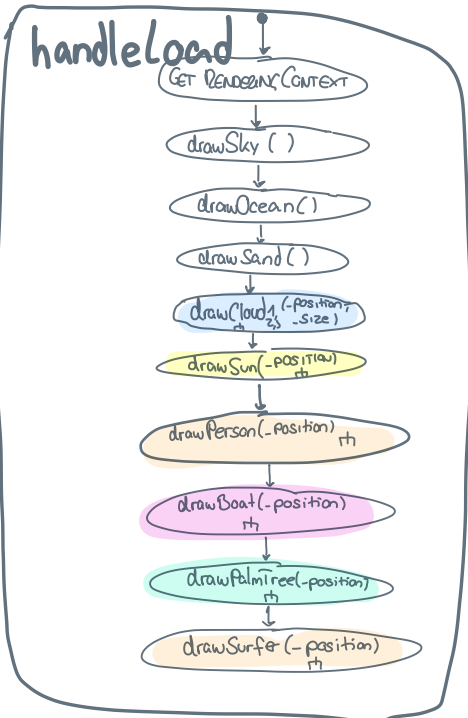 handleLoad
GET RENDERINGCONTEXT
drawSky ( )
drawOcean()
drawSand ( )
drawCloud1, (-position,
2,3 -Size)
drawSun(-POSITION)
drawPerson(-position)
drawBoat(-position)
drawPalmTree(-position)
drawSurfer (-position)